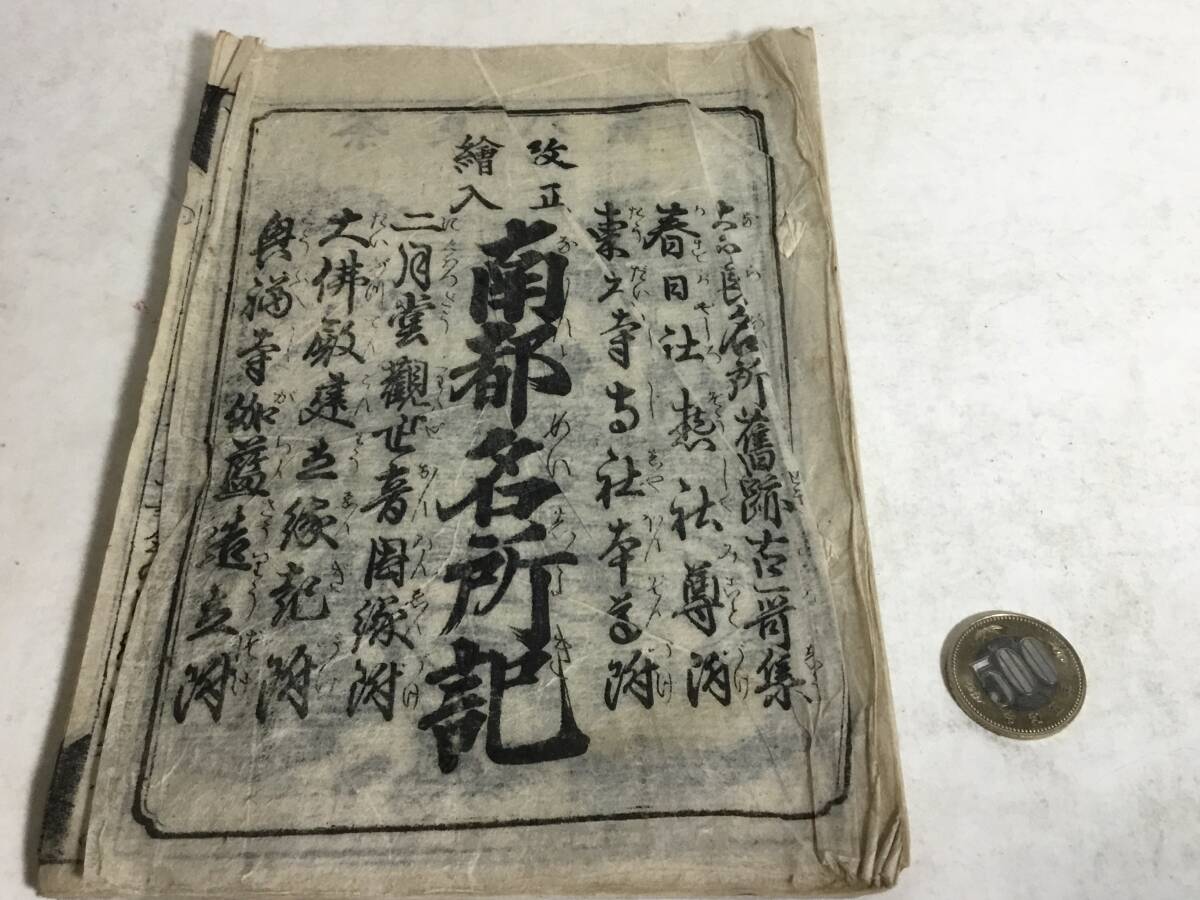 改正
繪入
奈良名所舊跡古哥集
春日社惣社尊附
東大寺寺社本尊附
南都名所記
二月堂觀世音因縁附
大佛殿建立縁記附
興福寺伽藍造立附
500